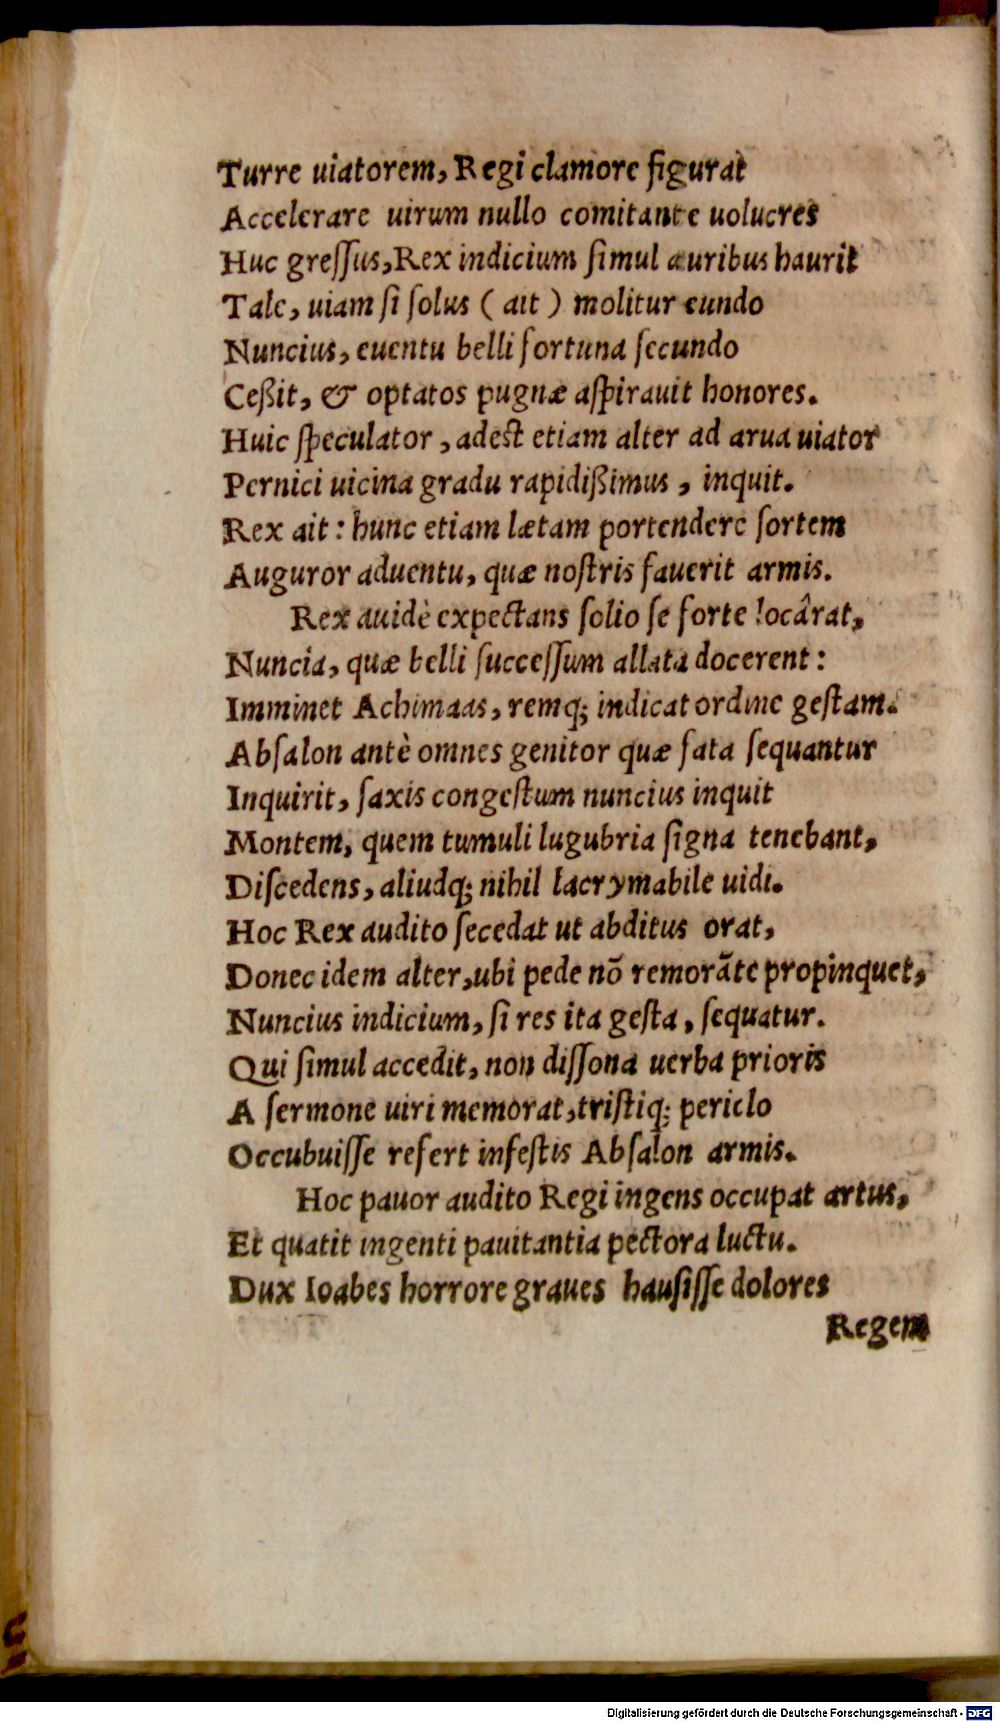 Turre uiatorem, Regi clamore figurat
Accelerare uirum nullo comitante uolucres
Huc greſſus, Rex indicium ſimul auribus haurit
Tale, uiam ſi ſolus ( ait ) molitur eundo
Nuncius, euentu belli fortuna ſecundo
Ceßit, & optatos pugnæ aſpirauit honores.
Huic ſpeculator, adest etiam alter ad arua uiator
Pernici uicina gradu rapidißimus, inquit.
Rex ait: hunc etiam lætam portendere ſortem
Auguror aduentu, quæ noſtris fauerit armis.
Rex auidè expectans ſolio ſe forte locârat,
Nuncia, quæ belli ſucceſſum allata docerent:
Imminet Achimaas, remq; indicat ordine geſtam.
Abſalon antè omnes genitor quæ fata ſequantur
Inquirit, ſaxis congeſtum nuncius inquit
Montem, quem tumuli lugubria ſigna tenebant,
Diſcedens, aliudq; nihil lacrymabile uidi.
Hoc Rex audito ſecedat ut abditus orat,
Donec idem alter, ubi pede nō remorāte propinquet,
Nuncius indicium, ſi res ita geſta, ſequatur.
Qui ſimul accedit, non diſſona uerba prioris
A ſermone uiri memorat, triſtiq; periclo
Occubuiſſe refert infeſtis Abſalon armis.
Hoc pauor audito Regi ingens occupat artus,
Et quatit ingenti pauitantia pectora luctu.
Dux Ioabes horrore graues hauſiſſe dolores
Regem
Digitalisierung gefördert durch die Deutsche Forschungsgemeinschaft - DFG